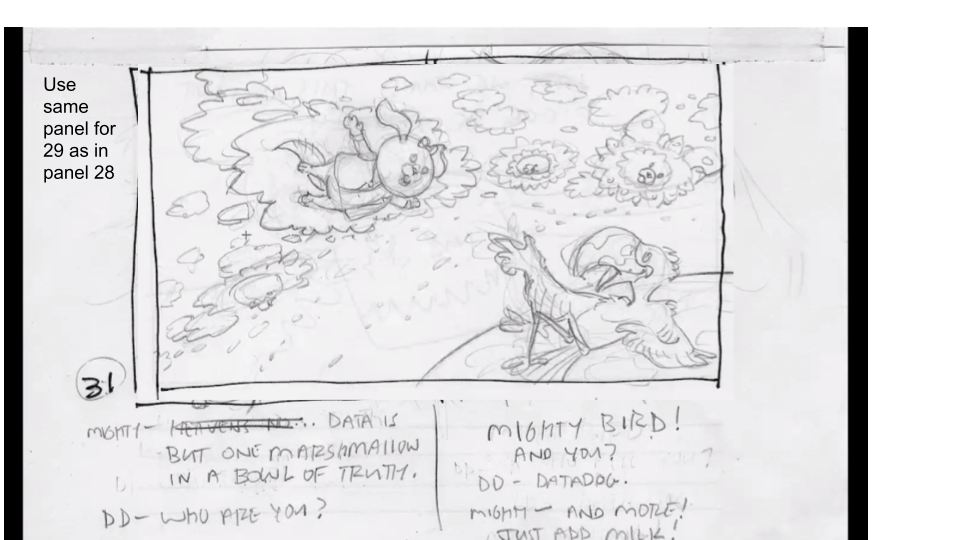 Use
same
panel for
29 as in
panel 28
31
MIGHTY - HEAVENS NO... DATA IS
BUT ONE MARSHMALLOW
IN A BOWL OF TRUTH.
DD - WHO ARE YOU?
MIGHTY BIRD!
AND YOU?
DD - DATADOG.
MIGHTY - AND MORE!
JUST ADD MILK!